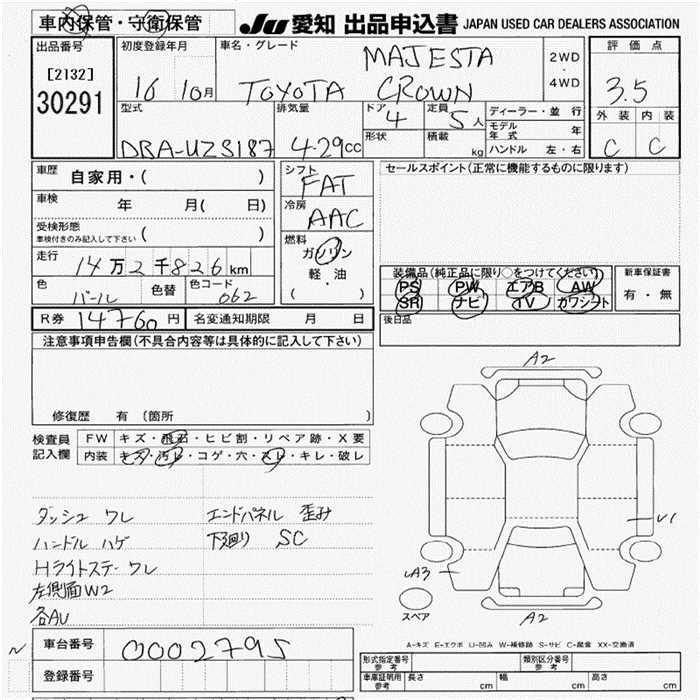 車内保管・守衛保管
JU 愛知 出品申込書 JAPAN USED CAR DEALERS ASSOCIATION
出品番号
[2132]
30291
初度登録年月
16 10月
車名・グレード
MAJESTA
TOYOTA CROWN
2WD
・
4WD
評価点
3.5
外装 内装
C C
型式
DBA-UZS187
排気量
4.29cc
ドア
4
形状
定員
5人
積載
kg
ディーラー・並行
モデル年式 年
ハンドル 左・右
車歴
自家用・( )
車検
年 月( 日)
受検形態
車検付きのみ記入して下さい ( )
走行
14万2千826km
色
パール
色替
色コード
062
シフト
FAT
冷房
AAC
燃料
ガソリン
軽・油
( )
セールスポイント(正常に機能するものに限ります)
装備品(純正品に限り○をつけてください)
PS PW エアB AW
SR ナビ TV カワシート
新車保証書
有・無
後日品
R券 14760円 名変通知期限 月 日
注意事項申告欄(不具合内容等は具体的に記入して下さい)
修復歴 有 〔箇所 〕
検査員記入欄
FW キズ・飛石・ヒビ割・リペア跡・X要
内装 キズ・汚レ・コゲ・穴・スレ・キレ・破レ
ダッシュ ワレ エンドパネル 歪み
ハンドル ハゲ 下廻り SC
Hライトステー ワレ
左側面W2
各AU
A2
U1
A3
スペア
A2
A-キズ E-エクボ U-凹み W-補修跡 S-サビ C-腐食 XX-交換済
N
車台番号 0002795
登録番号
形式指定番号 参考
類別区分番号 参考
車庫証明用 参考 長さ cm 幅 cm 高さ cm